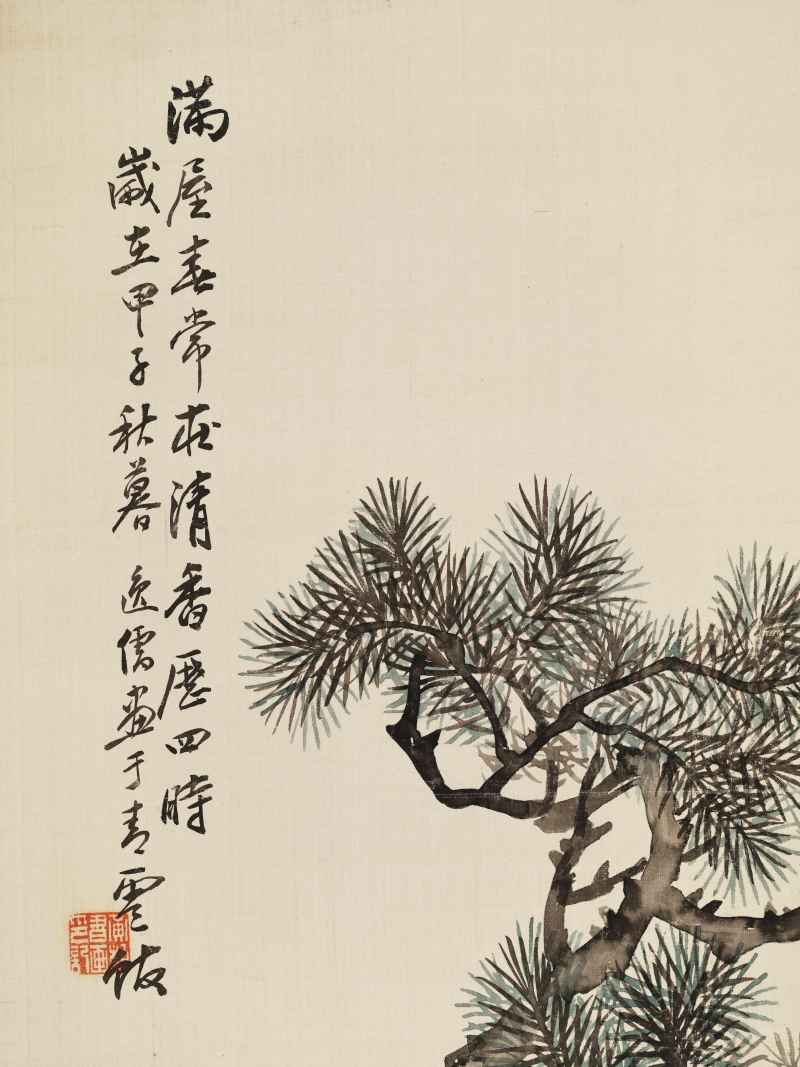 满屋春常在清香歷四時
歲在甲子秋暮逸儒畫于青雲館